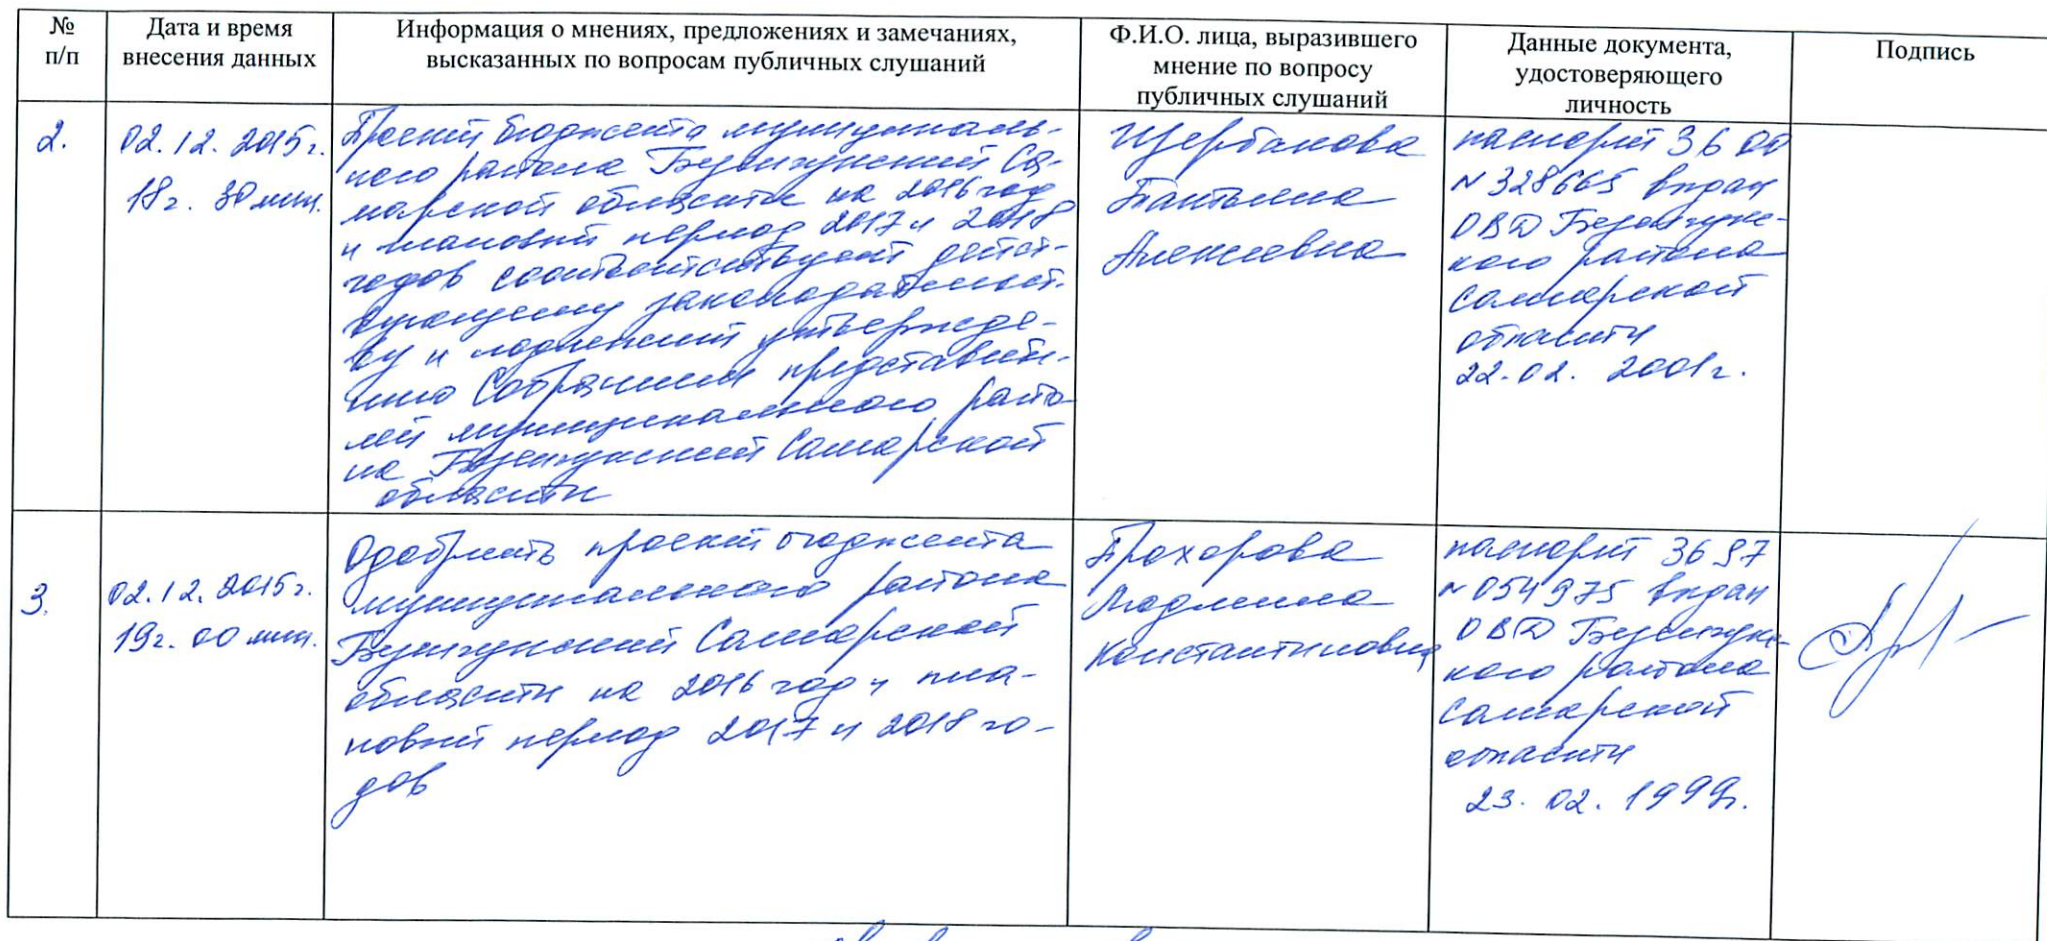 № п/п
Дата и время внесения данных
Информация о мнениях, предложениях и замечаниях,
высказанных по вопросам публичных слушаний
Ф.И.О. лица, выразившего
мнение по вопросу
публичных слушаний
Данные документа,
удостоверяющего
личность
Подпись
2.
02.12.2015г.
18г. 30 мин.
Проект бюджета муниципаль-
ного района Безенчукский Са-
марской области на 2016 год
и плановый период 2017 и 2018
годов соответствует дейст-
вующему законодательст-
ву и подлежит утвержде-
нию Собранием представите-
лей муниципального райо-
на Безенчукский Самарской
области
Щербакова
Татьяна
Алексеевна
паспорт 36 00
№ 328665 выдан
ОВД Безенчукс-
кого района
Самарской
области
22.02. 2001г.
3.
02.12.2015г.
19г. 00 мин.
Одобрить проект бюджета
муниципального района
Безенчукский Самарской
области на 2016 год и пла-
новый период 2017 и 2018 го-
дов
Прохорова
Людмила
Константиновна
паспорт 36 97
№ 054975 выдан
ОВД Безенчукс-
кого района
Самарской
области
23.02.1999г.